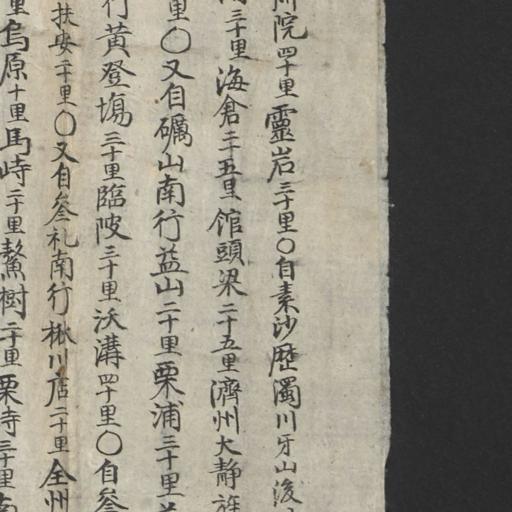 院四十里靈岩三十里〇自素沙歷濁川牙山
三十里海倉二十五里館頭梁二十五里濟州大静旌
里〇又自礪山南行益山二十里栗浦三十里
行黃登塲三十里臨陂三十里沃溝四十里〇自叅
扶安二十里〇又自叅礼南行楸川店二十里全州
里烏原十里馬峙二十里鰲樹二十里栗寺三十里南